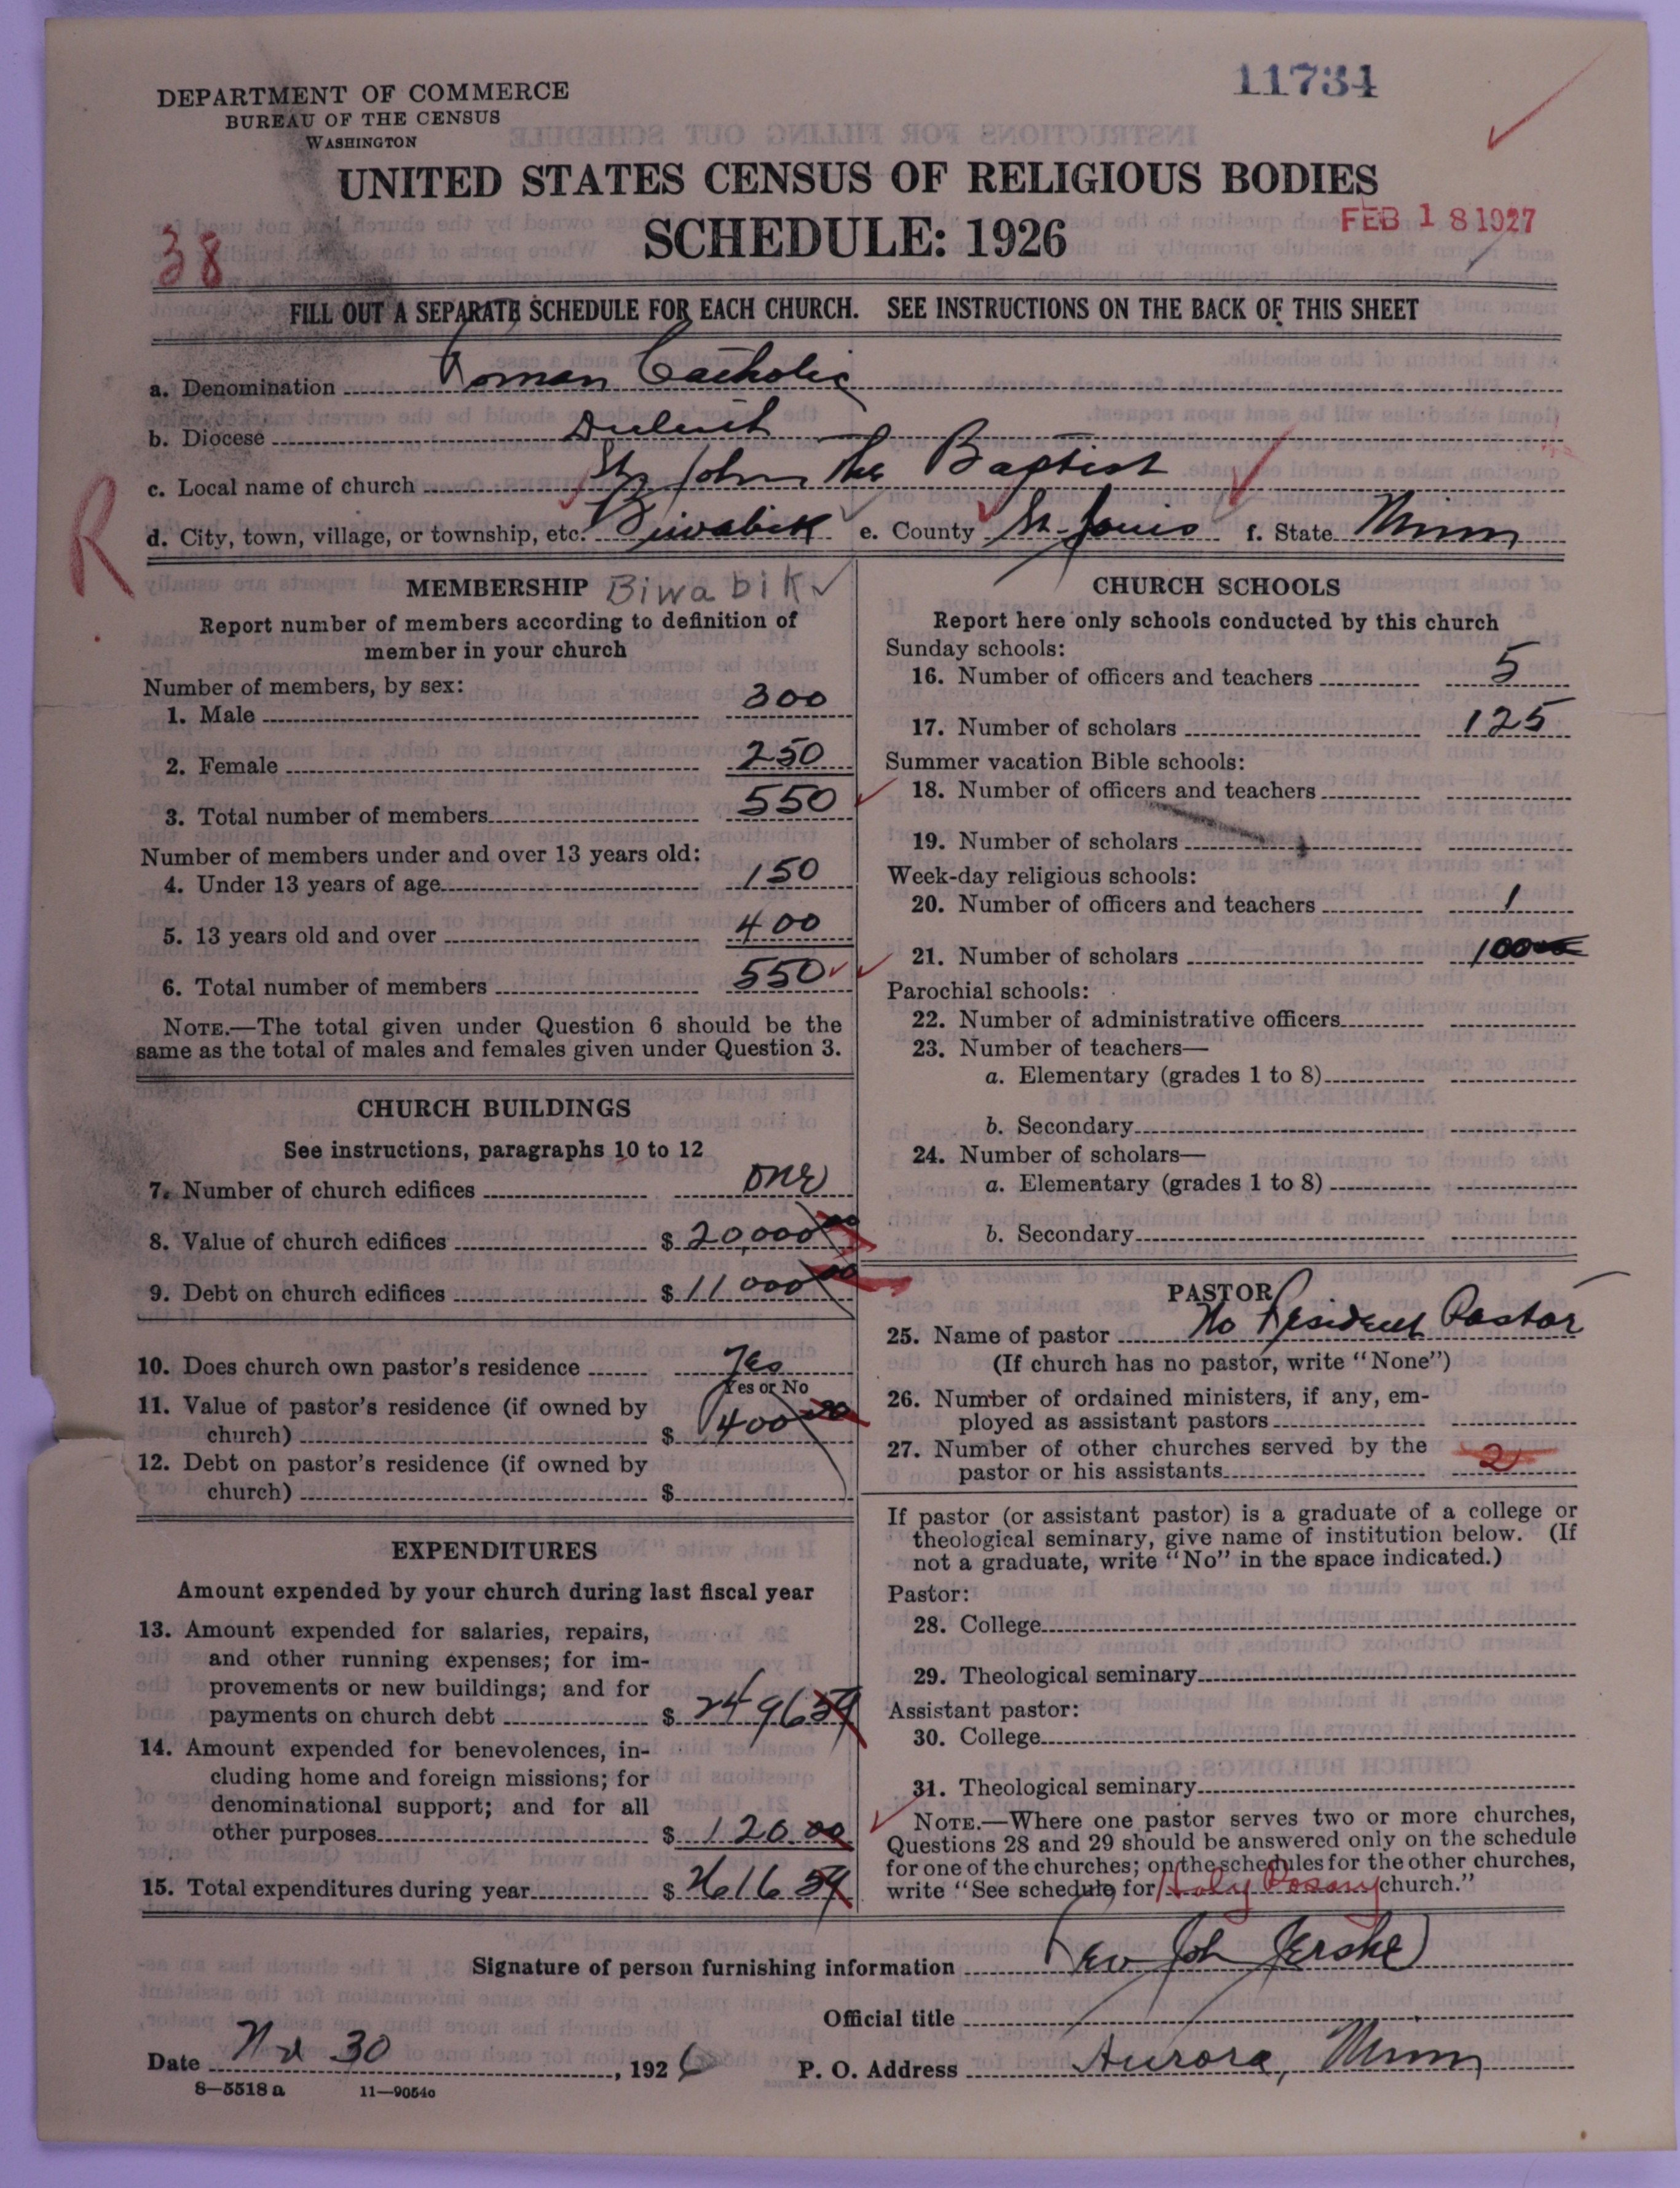 11734
DEPARTMENT OF COMMERCE
BUREAU OF THE CENSUS
WASHINGTON
UNITED STATES CENSUS OF RELIGIOUS BODIES
SCHEDULE: 1926
FEB 18 1927
38
FILL OUT A SEPARATE SCHEDULE FOR EACH CHURCH. SEE INSTRUCTIONS ON THE BACK OF THIS SHEET
a. Denomination Roman Catholic
b. Diocese Duluth
c. Local name of church St John the Baptist
R
d. City, town, village, or township, etc. Biwabik e. County St. Louis f. State Minn
MEMBERSHIP Biwabik
Report number of members according to definition of
member in your church
Number of members, by sex:
1. Male 300
2. Female 250
3. Total number of members 550
Number of members under and over 13 years old:
4. Under 13 years of age 150
5. 13 years old and over 400
6. Total number of members 550
NOTE.—The total given under Question 6 should be the
same as the total of males and females given under Question 3.
CHURCH BUILDINGS
See instructions, paragraphs 10 to 12
7. Number of church edifices one
8. Value of church edifices $ 20,000 00
9. Debt on church edifices $ 11 000 00
10. Does church own pastor's residence Yes
Yes or No
11. Value of pastor's residence (if owned by
church) $ 1400 00
12. Debt on pastor's residence (if owned by
church) $
EXPENDITURES
Amount expended by your church during last fiscal year
13. Amount expended for salaries, repairs,
and other running expenses; for im-
provements or new buildings; and for
payments on church debt $ 2496 59
14. Amount expended for benevolences, in-
cluding home and foreign missions; for
denominational support; and for all
other purposes $ 120.00
15. Total expenditures during year $ 2616 59
CHURCH SCHOOLS
Report here only schools conducted by this church
Sunday schools:
16. Number of officers and teachers 5
17. Number of scholars 125
Summer vacation Bible schools:
18. Number of officers and teachers
19. Number of scholars
Week-day religious schools:
20. Number of officers and teachers 1
21. Number of scholars 100
Parochial schools:
22. Number of administrative officers
23. Number of teachers—
a. Elementary (grades 1 to 8)
b. Secondary
24. Number of scholars—
a. Elementary (grades 1 to 8)
b. Secondary
PASTOR
25. Name of pastor No Resident Pastor
(If church has no pastor, write "None")
26. Number of ordained ministers, if any, em-
ployed as assistant pastors
27. Number of other churches served by the
pastor or his assistants 2
If pastor (or assistant pastor) is a graduate of a college or
theological seminary, give name of institution below. (If
not a graduate, write "No" in the space indicated.)
Pastor:
28. College
29. Theological seminary
Assistant pastor:
30. College
31. Theological seminary
NOTE.—Where one pastor serves two or more churches,
Questions 28 and 29 should be answered only on the schedule
for one of the churches; on the schedules for the other churches,
write "See schedule for Holy Rosary church."
Signature of person furnishing information Rev Joh Jershe
Official title
Date Nov 30, 1926 P. O. Address Aurora, Minn
8—5518 a 11—9054c